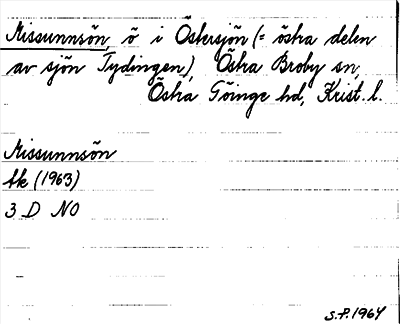 Missunnsön ö i Östersjön (= östra delen
av sjön Tydingen), Östra Broby sn,
Östra Göinge hd, Krist. l.
Missunnsön
tk (1963)
3 D NO
S.P. 1964